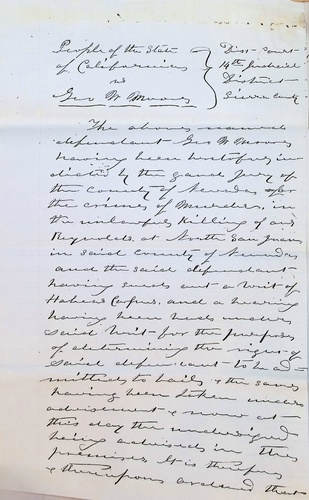 People of the State
of California
vs
Geo W Moores
Dist Court
14th Judicial
District
Sierra County
The above named
defendant Geo W Moores
having been heretofore in-
dicted by the grand Jury of
the County of Nevada for
the crime of Murder, in
the unlawful Killing of one
Reynolds, at North San Juan
in said County of Nevada
and the said defendant
having sued out a writ of
Habeas Corpus, and a hearing
having been had under
said Writ for the purpose
of determining the right of
said defendant to be ad-
mitted to bail, & the same
having been taken under
advisement & now at
this day the undersigned
being advised in the
premises. It is therefore
& thereupon ordered that